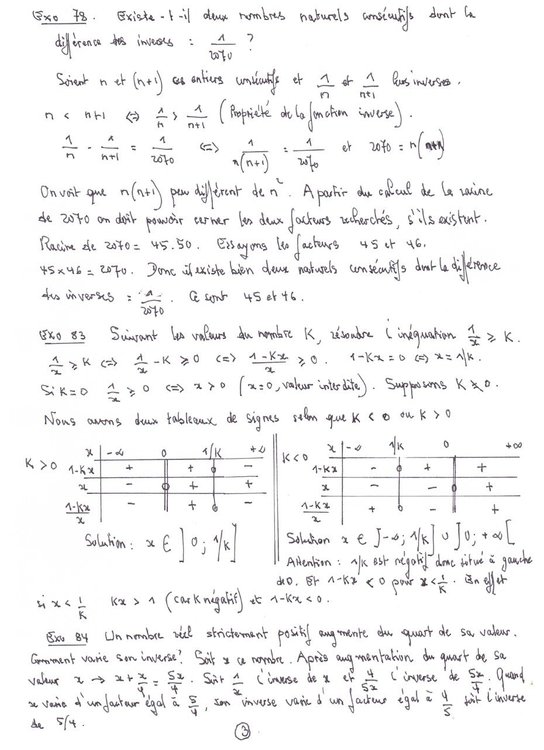 Exo 78. Existe-t-il deux nombres naturels consécutifs dont la
différence des inverses : 1/2070 ?
Soient n et (n+1) ces entiers consécutifs et 1/n et 1/(n+1) leurs inverses.
n < n+1 <=> 1/n > 1/(n+1) (Propriété de la fonction inverse).
1/n - 1/(n+1) = 1/2070 <=> 1/(n(n+1)) = 1/2070 et 2070 = n(n+1)
On voit que n(n+1) peu différent de n². A partir du calcul de la racine
de 2070 on doit pouvoir cerner les deux facteurs recherchés, s'ils existent.
Racine de 2070 = 45.50. Essayons les facteurs 45 et 46.
45 x 46 = 2070. Donc il existe bien deux naturels consécutifs dont la différence
des inverses : 1/2070. Ce sont 45 et 46.
Exo 83 Suivant les valeurs du nombre K, résoudre l'inéquation 1/x ≥ K.
1/x ≥ K <=> 1/x - K ≥ 0 <=> (1-Kx)/x ≥ 0. 1-Kx = 0 <=> x = 1/K.
Si K=0 1/x ≥ 0 <=> x > 0 (x=0, valeur interdite). Supposons K ≠ 0.
Nous avons deux tableaux de signes selon que K < 0 ou K > 0
K > 0
x -∞ 0 1/K +∞
1-Kx + + -
x - + +
(1-Kx)/x - + -
Solution : x ∈ ]0 ; 1/K]
K < 0
x -∞ 1/K 0 +∞
1-Kx - + +
x - - +
(1-Kx)/x + - +
Solution x ∈ ]-∞ ; 1/K] ∪ ]0 ; +∞[
Attention : 1/K est négatif donc situé à gauche
de 0. Et 1-Kx < 0 pour x < 1/K. En effet
si x < 1/K Kx > 1 (car K négatif) et 1-Kx < 0.
Exo 84 Un nombre réel strictement positif augmente du quart de sa valeur.
Comment varie son inverse? Soit x ce nombre. Après augmentation du quart de sa
valeur x → x + x/4 = 5x/4. Soit 1/x l'inverse de x et 4/5x l'inverse de 5x/4. Quand
x varie d'un facteur égal à 5/4, son inverse varie d'un facteur égal à 4/5 soit l'inverse
de 5/4.
3